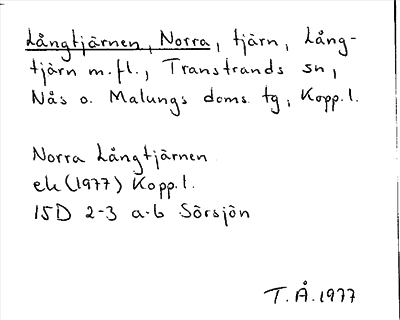 Långtjärnen, Norra, tjärn, Lång-
tjärn m.fl., Transtrands sn,
Nås o. Malungs doms. tg, Kopp.l.
Norra Långtjärnen
ek (1977) Kopp.l.
15D 2-3 a-b Sörsjön
T.Å.1977